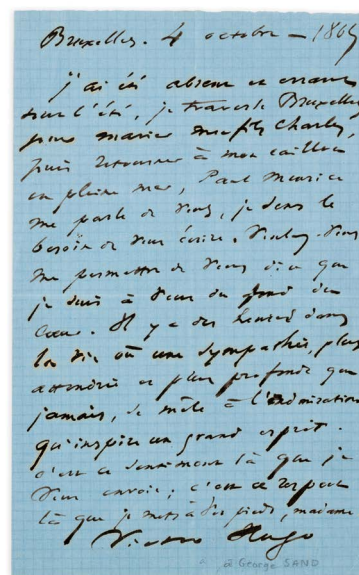 Bruxelles. 4 octobre — 1865
j'ai été absent et errant
tout l'été, je traverse Bruxelles
pour marier mon fils Charles,
puis retourner à mon caillou
en pleine mer, Paul Meurice
me parle de vous, je sens le
besoin de vous écrire. Voulez-vous
me permettre de vous dire que
je suis à vous du fond du
cœur. Il y a des heures dans
la vie où une sympathie, plus
attendrie et plus profonde que
jamais, se mêle à l'admiration
qu'inspire un grand esprit.
c'est ce sentiment là que je
vous envoie ; c'est ce respect
là que je mets à vos pieds, madame
Victor Hugo
à George SAND